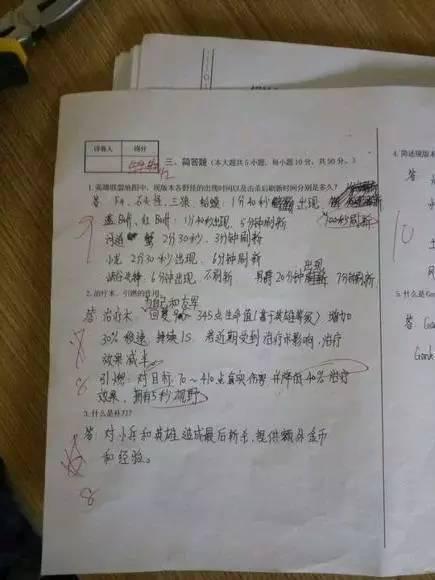 评卷人 得分
三、简答题（本大题共5小题，每小题10分，共50分。）
1.英雄联盟地图中，现版本各野怪的出现时间以及击杀后刷新时间分别是多久？
答 F4、石头怪、三狼、蛤蟆：1分40秒 出现
100秒刷新
蓝Buff、红Buff：1分40秒出现，5分钟刷新
河道 蟹 2分30秒，3分钟刷新
小龙 2分30秒出现，6分钟刷新
峡谷先锋：6分钟出现，不刷新 男爵20分钟出现 7分钟刷新
9
2.治疗术、引燃的作用
为自己和友军
答 治疗术：回复 345点生命值(基于英雄等级) 增加
30%移速，持续1S。若近期受到治疗术影响，治疗
效果减半
引燃：对目标70~410点真实伤害并降低40%治疗
效果，拥有5秒视野
8
3.什么是补刀？
答：对小兵和英雄造成最后斩杀，提供额外金币
和经验。
8
4.简述现版本
答
10
5.什么是Ga
答：Gan
Gank